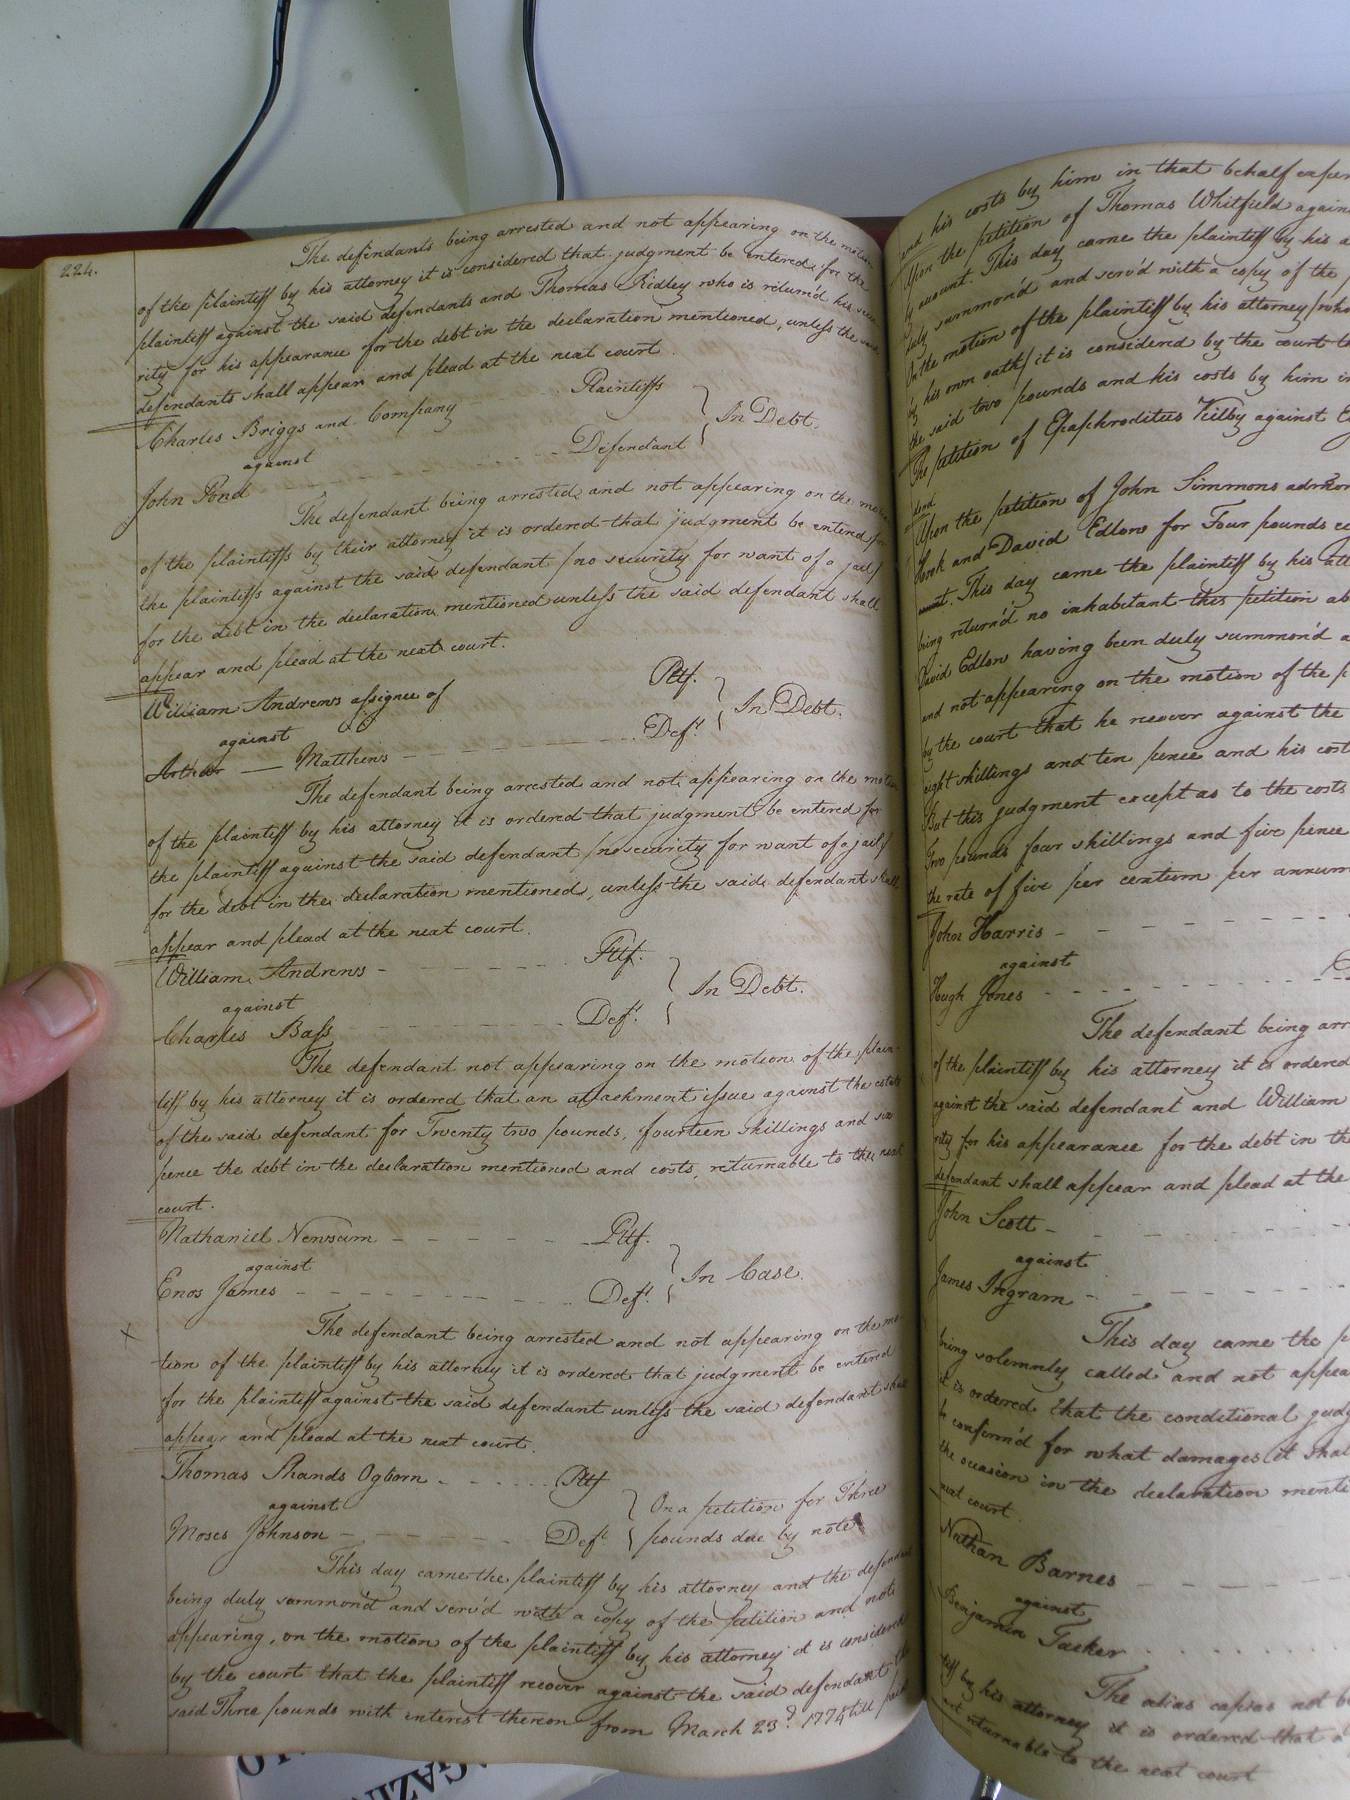 224.
The defendants being arrested and not appearing on the motion
of the plaintiff by his attorney it is considered that judgment be entered for the
plaintiff against the said defendants and Thomas Ridley who is return'd his secu
rity for his appearance for the debt in the declaration mentioned, unless the said
defendants shall appear and plead at the next court.
Charles Briggs and Company Plaintiffs
against In Debt.
John Pond Defendant
The defendant being arrested and not appearing on the motion
of the plaintiffs by their attorney it is ordered that judgment be entered for
the plaintiffs against the said defendant /no security for want of a jail/
for the debt in the declaration mentioned unless the said defendant shall
appear and plead at the next court.
William Andrews assignee of Pltf.
against In Debt.
Arthur Matthews Deft.
The defendant being arrested and not appearing on the motion
of the plaintiff by his attorney it is ordered that judgment be entered for
the plaintiff against the said defendant /no security for want of a jail/
for the debt in the declaration mentioned, unless the said defendant shall
appear and plead at the next court.
William Andrews Pltf.
against In Debt.
Charles Bass Deft.
The defendant not appearing on the motion of the plain-
tiff by his attorney it is ordered that an attachment issue against the estate
of the said defendant for Twenty two pounds, fourteen shillings and six
pence the debt in the declaration mentioned and costs, returnable to the next
court.
Nathaniel Newsum Pltf.
against In Case.
Enos James Deft.
The defendant being arrested and not appearing on the mo
tion of the plaintiff by his attorney it is ordered that judgment be entered
for the plaintiff against the said defendant unless the said defendant shall
appear and plead at the next court.
Thomas Shands Ogborn Pltf
against On a petition for Three
Moses Johnson Deft. pounds due by note
This day came the plaintiff by his attorney and the defendant
being duly summon'd and serv'd with a copy of the petition and note
appearing, on the motion of the plaintiff by his attorney it is considered
by the court that the plaintiff recover against the said defendant the
said Three pounds with interest thereon from March 23d. 1774 till paid
and his costs by him in that behalf expen
Upon the petition of Thomas Whitfield again
by account. This day came the plaintiff by his a
duly summon'd and serv'd with a copy of the
On the motion of the plaintiff by his attorney /who
by his own oath/ it is considered by the court t
the said two pounds and his costs by him in
The petition of Epaphroditus Kilby against
Upon the petition of John Simmons
Cook and David Edlow for Four pounds
This day came the plaintiff by his att
being return'd no inhabitant this petition ab
David Edlow having been duly summon'd a
and not appearing on the motion of the p
by the court that he recover against the
eight shillings and ten pence and his cost
But this judgment except as to the costs
Two pounds four shillings and five pence
the rate of five per centum per annum
John Harris
against
Hough Jones
The defendant being arr
of the plaintiff by his attorney it is ordered
against the said defendant and William
rity for his appearance for the debt in th
defendant shall appear and plead at the
John Scott
against
James Ingram
This day came the p
being solemnly called and not appea
it is ordered that the conditional judg
be confirm'd for what damages it shal
the occasion in the declaration menti
next court.
Nathan Barnes
against
Benjamin Tucker
The alias capias not b
tiff by his attorney it is ordered that a
returnable to the next court